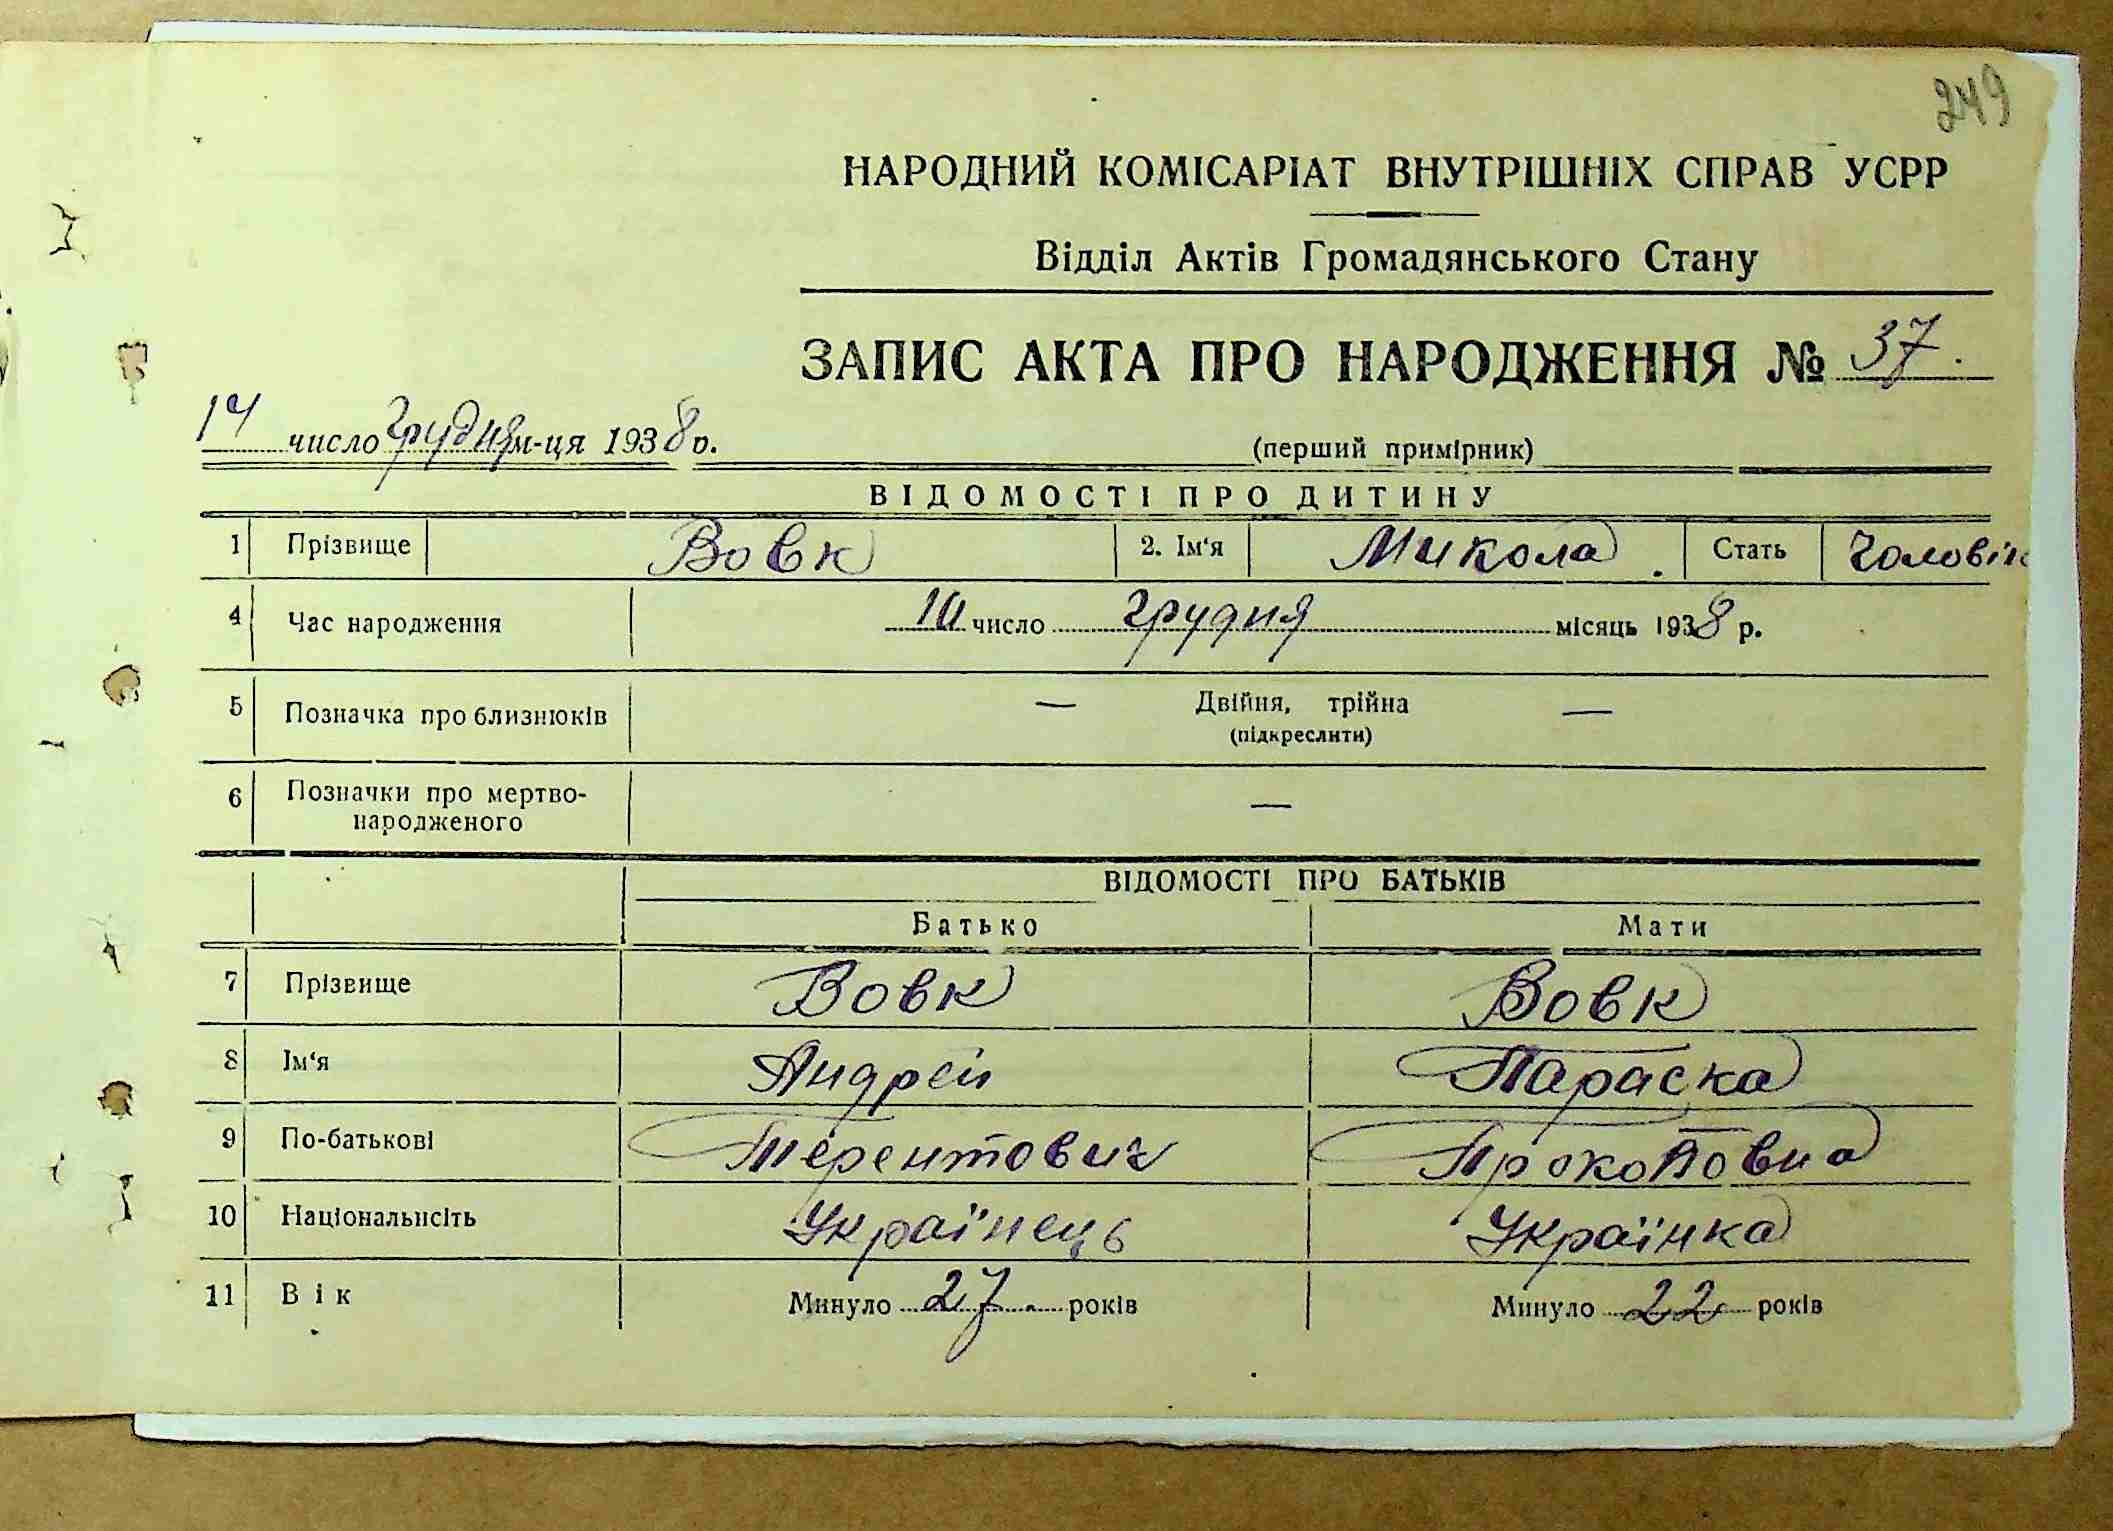 249
НАРОДНИЙ КОМІСАРІАТ ВНУТРІШНІХ СПРАВ УСРР
Відділ Актів Громадянського Стану
ЗАПИС АКТА ПРО НАРОДЖЕННЯ № 37.
14 число грудня м-ця 1938 р.
(перший примірник)
ВІДОМОСТІ ПРО ДИТИНУ
1 Прізвище Вовк 2. Ім'я Микола. Стать Чоловік
4 Час народження 10 число грудня місяць 1938 р.
5 Позначка про близнюків — Двійня, трійна —
(підкреслити)
6 Позначки про мертво-
народженого —
ВІДОМОСТІ ПРО БАТЬКІВ
Батько Мати
7 Прізвище Вовк Вовк
8 Ім'я Андрей Параска
9 По-батькові Терентович Прокоповна
10 Національність Українець Українка
11 Вік Минуло 27. років Минуло 22 років